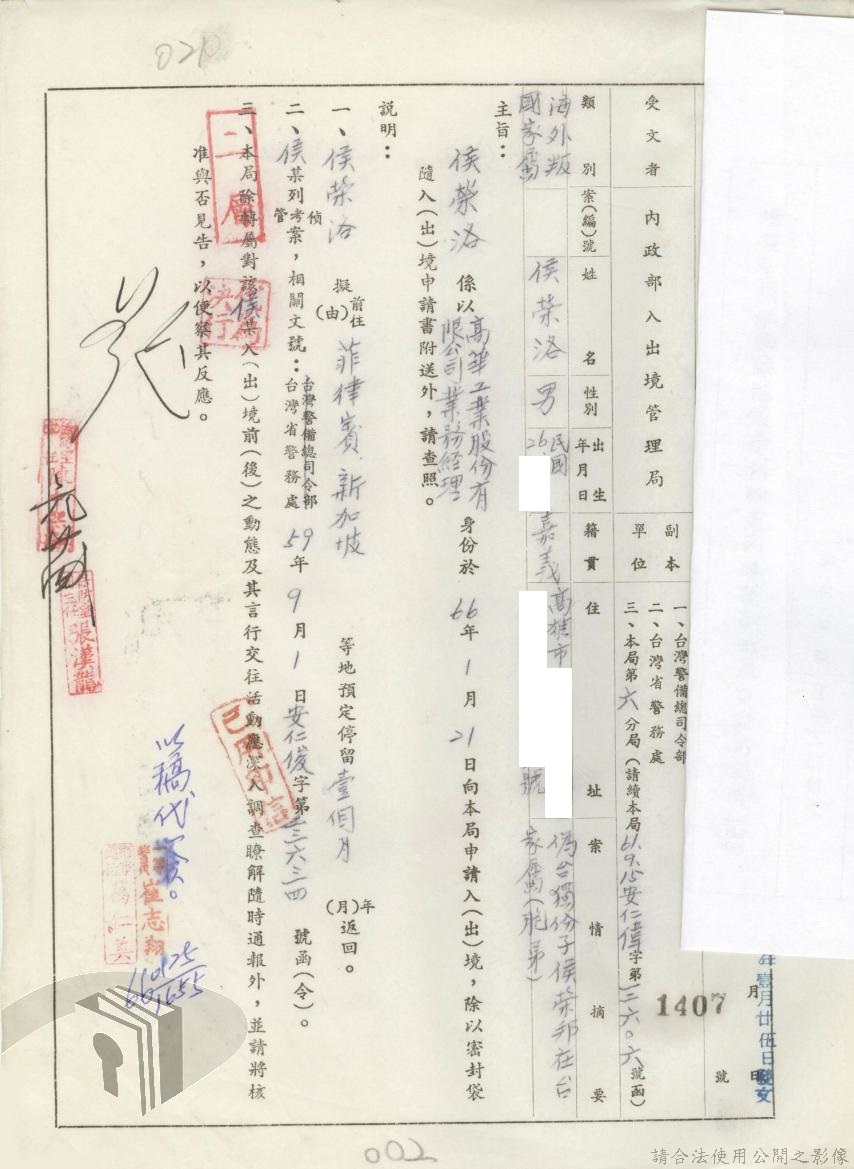 020
受文者 內政部入出境管理局
副本單位
一、台灣警備總司令部
二、台灣省警務處
三、本局第六分局(請續本局61.9.15安仁偉字第一三六〇六號函)
年壹月廿伍日發文
月 日
1407 號
類別 案(編)號 姓名 性別 出生年月日 籍貫 住址 案情摘要
海外叛國家屬 侯榮洛 男 民國26 嘉義 高雄市 號 偽台獨份子侯榮邦在台家屬(胞弟)
主旨:
侯榮洛 係以高華工業股份有限公司業務經理身份於66年1月21日向本局申請入(出)境,除以密封袋
隨入(出)境申請書附送外,請查照。
說明:
一、侯榮洛 擬前往(由)菲律賓、新加坡 等地預定停留壹個月年(月)返回。
二、侯某列偵管考案,相關文號:台灣警備總司令部台灣省警務處59年9月1日安仁俊字第三三六三四號函(令)。
三、本局除轉屬對該侯某入(出)境前(後)之動態及其言行交往活動應深入調查瞭解隨時通報外,並請將核
准與否見告,以便察其反應。
二屬
代為決行
張漢龍
以稿代簽。
崔志翔
萬仁美
660125
1655
002
請合法使用公開之影像